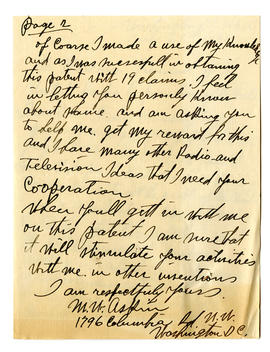 Page 2
of Coarse I made a use of My Knowledge
and as I was successfull in obtaining
this patent with 19 claims. I feel
in letting You personly Know
about Same. and am asking you
to help me. get my reward for this
and I have many other Radio and
Television Ideas that I need your
Cooperation.
When Youll gett in with me
on this patent I am sure that
it will stemulate your activities
with me. in other inventions
I am respectfully Yours
M. W. Askin
1796 Columbia Rd N.W.
Washington D.C.